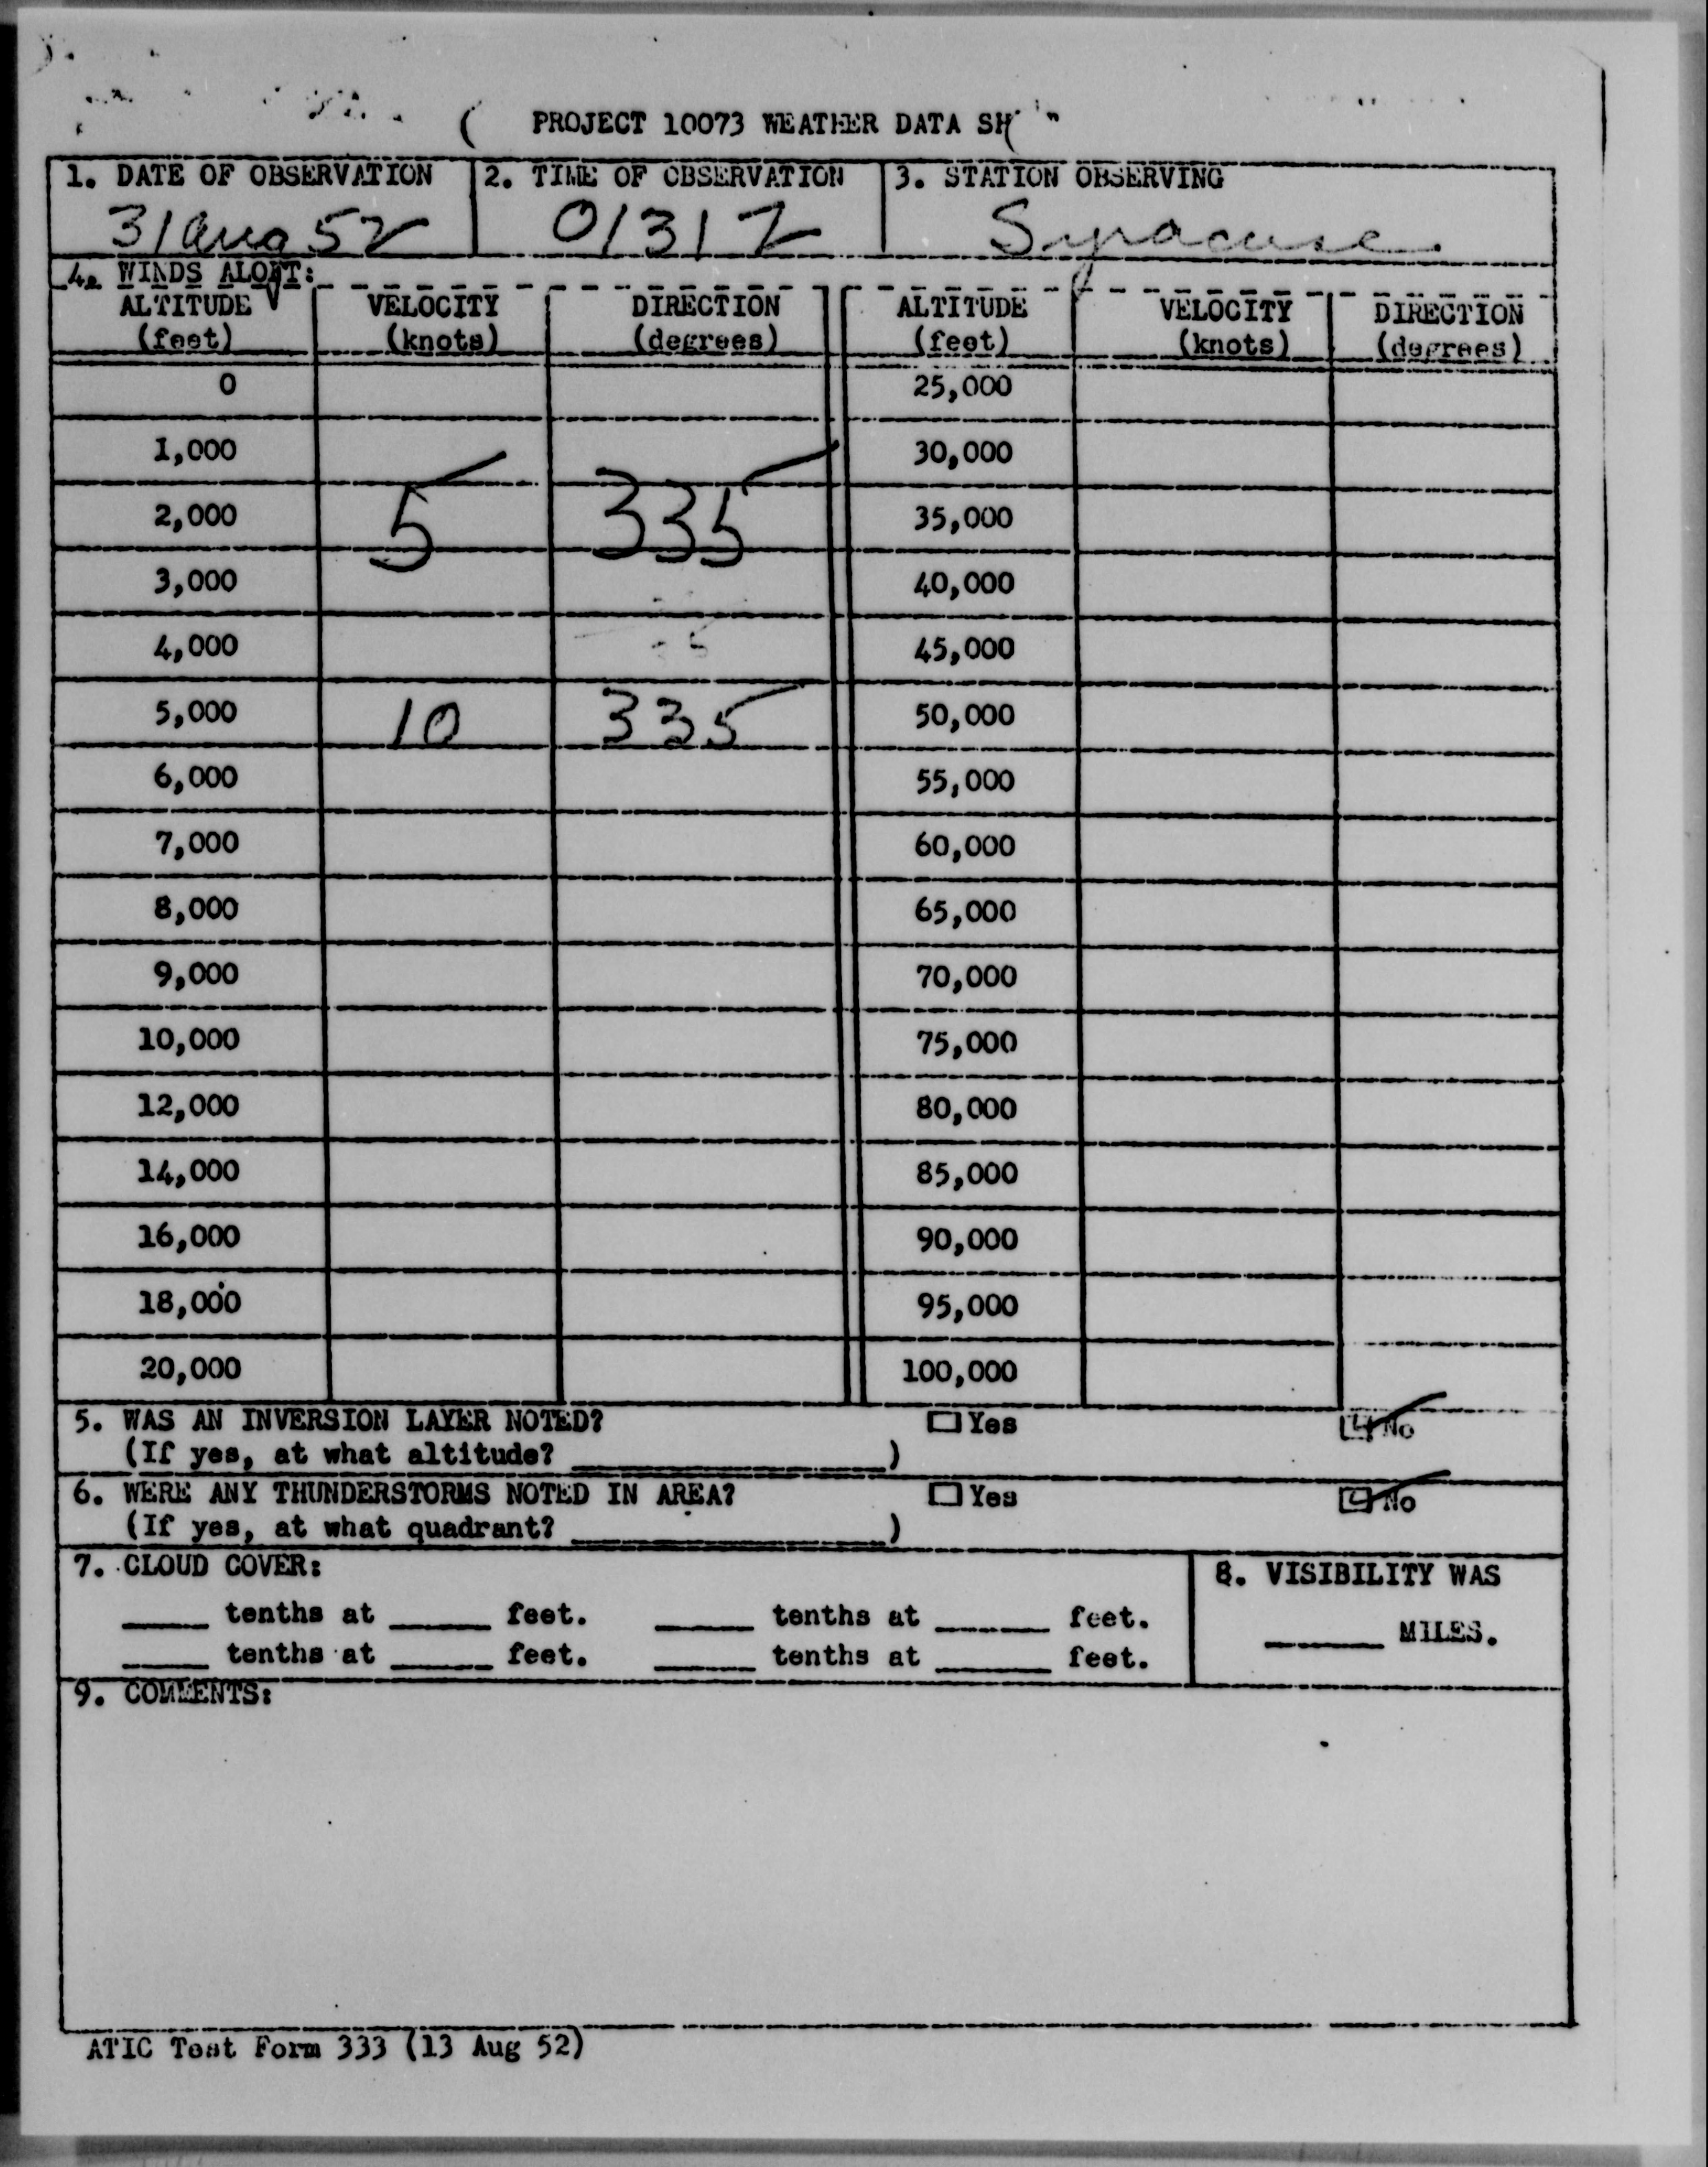 PROJECT 10073 WEATHER DATA SH
1. DATE OF OBSERVATION 2. TIME OF OBSERVATION 3. STATION OBSERVING
31 Aug 52 0131Z Syracuse
4. WINDS ALOFT:
ALTITUDE VELOCITY DIRECTION ALTITUDE VELOCITY DIRECTION
(feet) (knots) (degrees) (feet) (knots) (degrees)
0 25,000
1,000 30,000
2,000 5 335 35,000
3,000 40,000
4,000 45,000
5,000 10 335 50,000
6,000 55,000
7,000 60,000
8,000 65,000
9,000 70,000
10,000 75,000
12,000 80,000
14,000 85,000
16,000 90,000
18,000 95,000
20,000 100,000
5. WAS AN INVERSION LAYER NOTED? Yes No
(If yes, at what altitude? )
6. WERE ANY THUNDERSTORMS NOTED IN AREA? Yes No
(If yes, at what quadrant? )
7. CLOUD COVER: 8. VISIBILITY WAS
tenths at feet. tenths at feet. MILES.
tenths at feet. tenths at feet.
9. COMMENTS:
ATIC Test Form 333 (13 Aug 52)